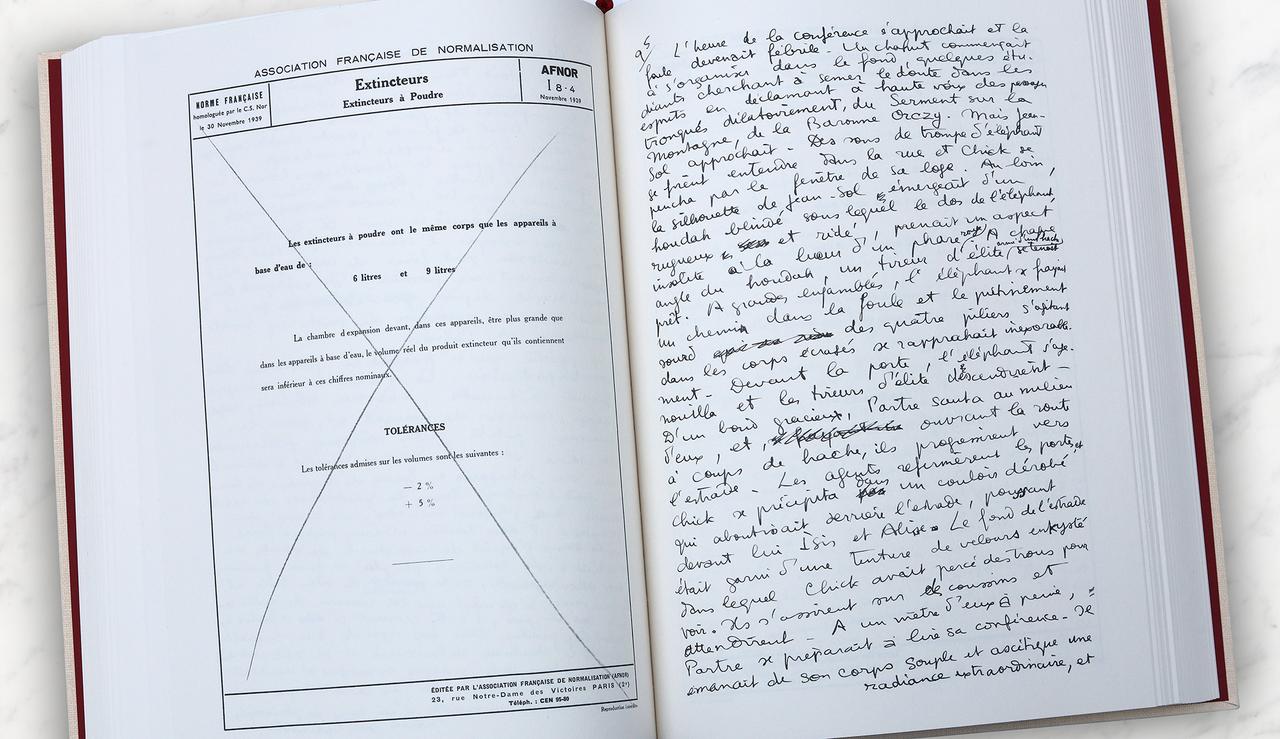 ASSOCIATION FRANÇAISE DE NORMALISATION
NORME FRANÇAISE
homologuée par le C.S. Nor
le 30 Novembre 1939
Extincteurs
Extincteurs à Poudre
AFNOR
18-4
Novembre 1939
Les extincteurs à poudre ont le même corps que les appareils à
base d'eau de :
6 litres et 9 litres
La chambre d'expansion devant, dans ces appareils, être plus grande que
dans les appareils à base d'eau, le volume réel du produit extincteur qu'ils contiennent
sera inférieur à ces chiffres nominaux.
TOLÉRANCES
Les tolérances admises sur les volumes sont les suivantes :
— 2 %
+ 5 %
ÉDITÉE PAR L'ASSOCIATION FRANÇAISE DE NORMALISATION (AFNOR)
23, rue Notre-Dame des Victoires PARIS (2e)
Téléph. : CEN 95-80
Reproduction interdite
95
L'heure de la conférence s'approchait et la
foule devenait fébrile. Un chahut commençait
à s'organiser dans le fond, quelques étu-
diants cherchant à semer le doute dans les
esprits en déclamant à haute voix des passages
tronqués dilatoirement, du Serment sur la
Montagne, de la Baronne Orczy. Mais Jean-
Sol approchait. Des sons de trompe d'éléphant
se firent entendre dans la rue et Chick se
pencha par la fenêtre de sa loge. Au loin
la silhouette de Jean-Sol émergeait d'un
houdah blindé sous lequel le dos de l'éléphant,
rugueux et ridé, prenait un aspect
insolite à la lueur d'un phare rouge. A chaque
angle du houdah, un tireur d'élite, armé d'une hache, se tenait
prêt. A grandes enjambées, l'éléphant se frayait
un chemin dans la foule et le piétinement
sourd des quatre piliers s'agitant
dans les corps écrasés se rapprochait inexorable-
ment. Devant la porte, l'éléphant s'age-
nouilla et les tireurs d'élite descendirent.
D'un bond gracieux, Partre sauta au milieu
d'eux, et, ouvrant la route
à coups de hache, ils progressèrent vers
l'estrade. Les agents refermèrent les portes, et
Chick se précipita dans un couloir dérobé
qui aboutissait derrière l'estrade, poussant
devant lui Isis et Alise. Le fond de l'estrade
était garni d'une tenture de velours enkysté
dans lequel Chick avait percé des trous pour
voir. Ils s'assirent sur des coussins et
attendirent. A un mètre d'eux à peine,
Partre se préparait à lire sa conférence. Il
émanait de son corps souple et ascétique une
radiance extraordinaire, et